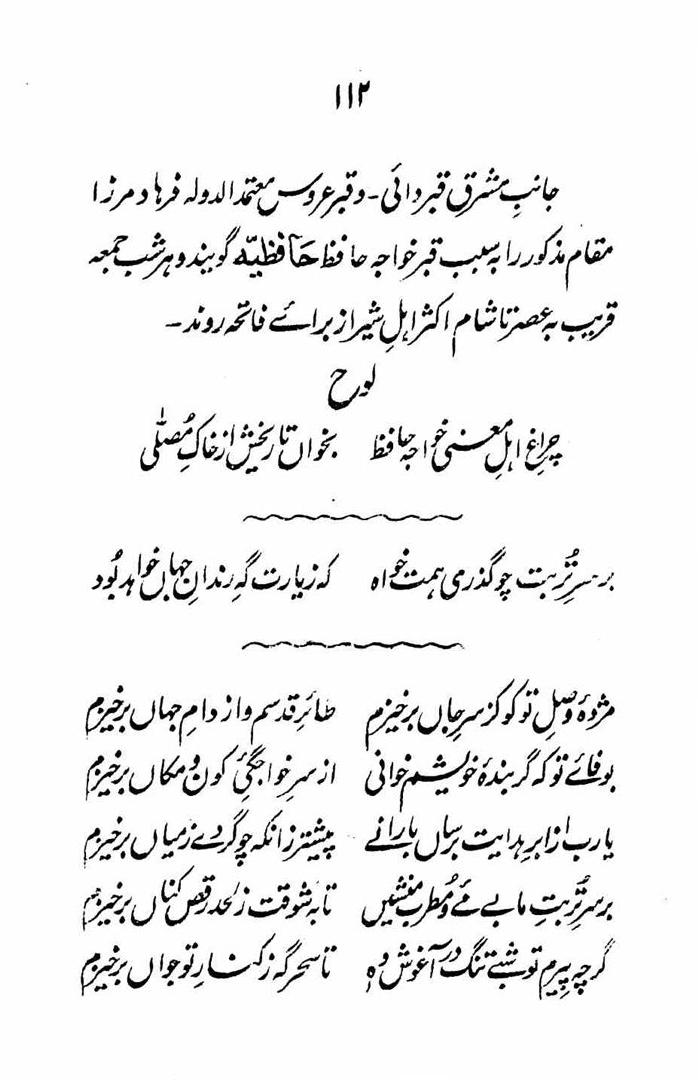 ۱۱۲
جانبِ مشرق قبر دائی - و قبر عروس معتمد الدولہ فرہاد مرزا
مقام مذکور را بہ سبب قبر خواجہ حافظ حَافظیّہ گویند و ہر شب جمعہ
قریب بہ عصر تا شام اکثر اہلِ شیراز برائے فاتحہ روند -
لوح
چراغِ اہلِ معنی خواجہ حافظ بخواں تاریخش از خاکِ مُصلّٰی
بر سرِ تُربت چو گذری ہمت خواہ کہ زیارت گہِ رندانِ جہاں خواہد بُود
مژدۂ وصلِ تو کو کز سرِ جاں برخیزم طائرِ قدسم و از دامِ جہاں برخیزم
بوفائے تو کہ گر بندۂ خویشم خوانی از سرِ خواجگیِٔ کون و مکاں برخیزم
یارب از ابرِ ہدایت برساں بارانے پیشتر زانکہ چو گردے زمیاں برخیزم
بر سرِ تُربتِ ما بے مئے و مُطرب منشیں تا بہ شوقت ز لحد رقص کناں برخیزم
گرچہ پیرم تو شبے تنگ در آغوش دہ تا سحر گہ ز کنارِ تو جواں برخیزم